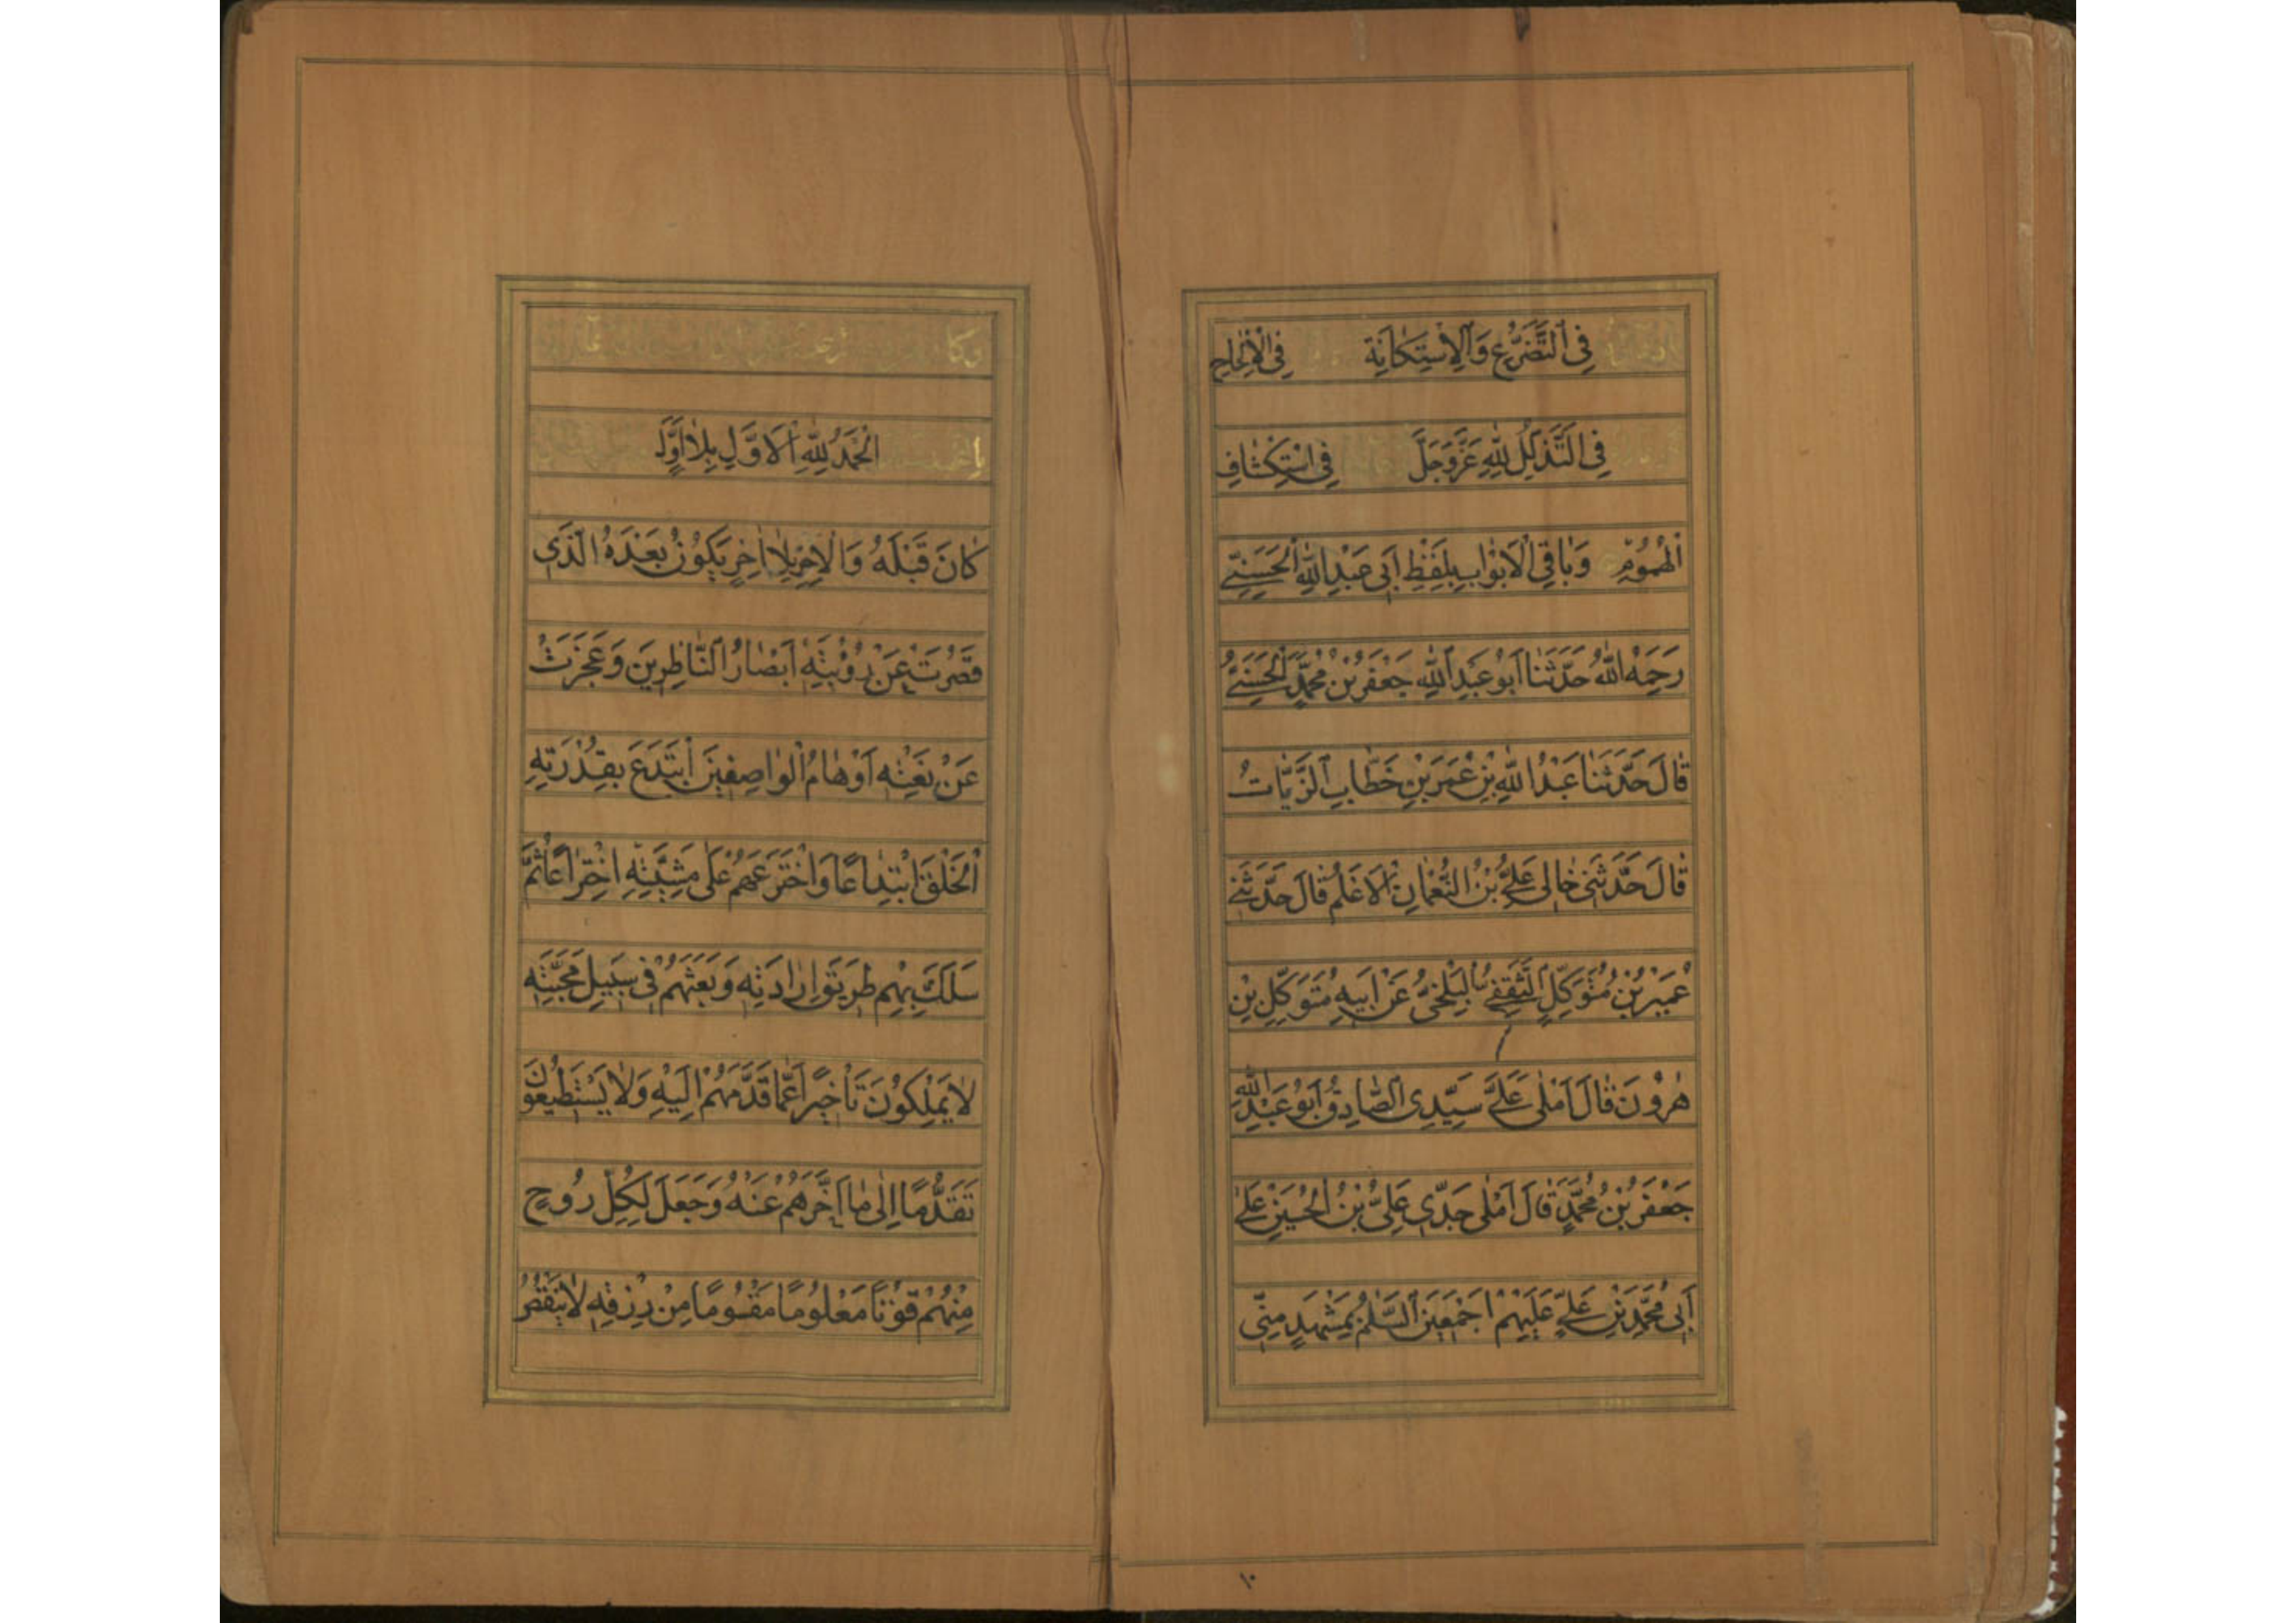 فِي التَّضَرُّعِ وَالْاِسْتِكَانَةِ فِي الْاِلْحَاحِ
فِي التَّذَلُّلِ لِلّٰهِ عَزَّ وَجَلَّ فِي اسْتِكْشَافِ
الْهُمُوْمِ وَبَاقِي الْاَبْوَابِ بِلَفْظِ اَبِي عَبْدِ اللّٰهِ الْحَسَنِيِّ
رَحِمَهُ اللّٰهُ حَدَّثَنَا اَبُوْ عَبْدِ اللّٰهِ جَعْفَرُ بْنُ مُحَمَّدٍ الْحَسَنِيُّ
قَالَ حَدَّثَنَا عَبْدُ اللّٰهِ بْنِ عُمَرَ بْنِ خَطَّابِ الزَّيَّاتُ
قَالَ حَدَّثَنِي خَالِي عَلِيُّ بْنُ النُّعْمَانِ الْاَعْلَمُ قَالَ حَدَّثَنِي
عُمَيْرُ بْنُ مُتَوَكِّلٍ الثَّقَفِيُّ الْبَلْخِيُّ عَنْ اَبِيهِ مُتَوَكِّلِ بْنِ
هٰرُوْنَ قَالَ اَمْلٰى عَلَيَّ سَيِّدِي الصَّادِقُ اَبُوْ عَبْدِ اللّٰهِ
جَعْفَرُ بْنُ مُحَمَّدٍ قَالَ اَمْلٰى جَدِّي عَلِيُّ بْنُ الْحُسَيْنِ عَلٰى
اَبِي مُحَمَّدِ بْنِ عَلِيٍّ عَلَيْهِمْ اَجْمَعِينَ السَّلٰمُ بِمَشْهَدٍ مِنِّي
وَكَانَ
اَلْحَمْدُ لِلّٰهِ الْاَوَّلِ بِلَا اَوَّلٍ
كَانَ قَبْلَهُ وَالْاٰخِرِ بِلَا اٰخِرٍ يَكُوْنُ بَعْدَهُ الَّذِي
قَصُرَتْ عَنْ رُؤْيَتِهِ اَبْصَارُ النَّاظِرِينَ وَعَجَزَتْ
عَنْ نَعْتِهِ اَوْهَامُ الْوَاصِفِينَ ابْتَدَعَ بِقُدْرَتِهِ
الْخَلْقَ ابْتِدَاعًا وَاخْتَرَعَهُمْ عَلٰى مَشِيَّتِهِ اخْتِرَاعًا ثُمَّ
سَلَكَ بِهِمْ طَرِيقَ اِرَادَتِهِ وَبَعَثَهُمْ فِي سَبِيلِ مَحَبَّتِهِ
لَا يَمْلِكُوْنَ تَأْخِيرًا عَمَّا قَدَّمَهُمْ اِلَيْهِ وَلَا يَسْتَطِيعُوْنَ
تَقَدُّمًا اِلٰى مَا اَخَّرَهُمْ عَنْهُ وَجَعَلَ لِكُلِّ رُوْحٍ
مِنْهُمْ قُوْتًا مَعْلُوْمًا مَقْسُوْمًا مِنْ رِزْقِهِ لَا يَنْقُصُ
١٠